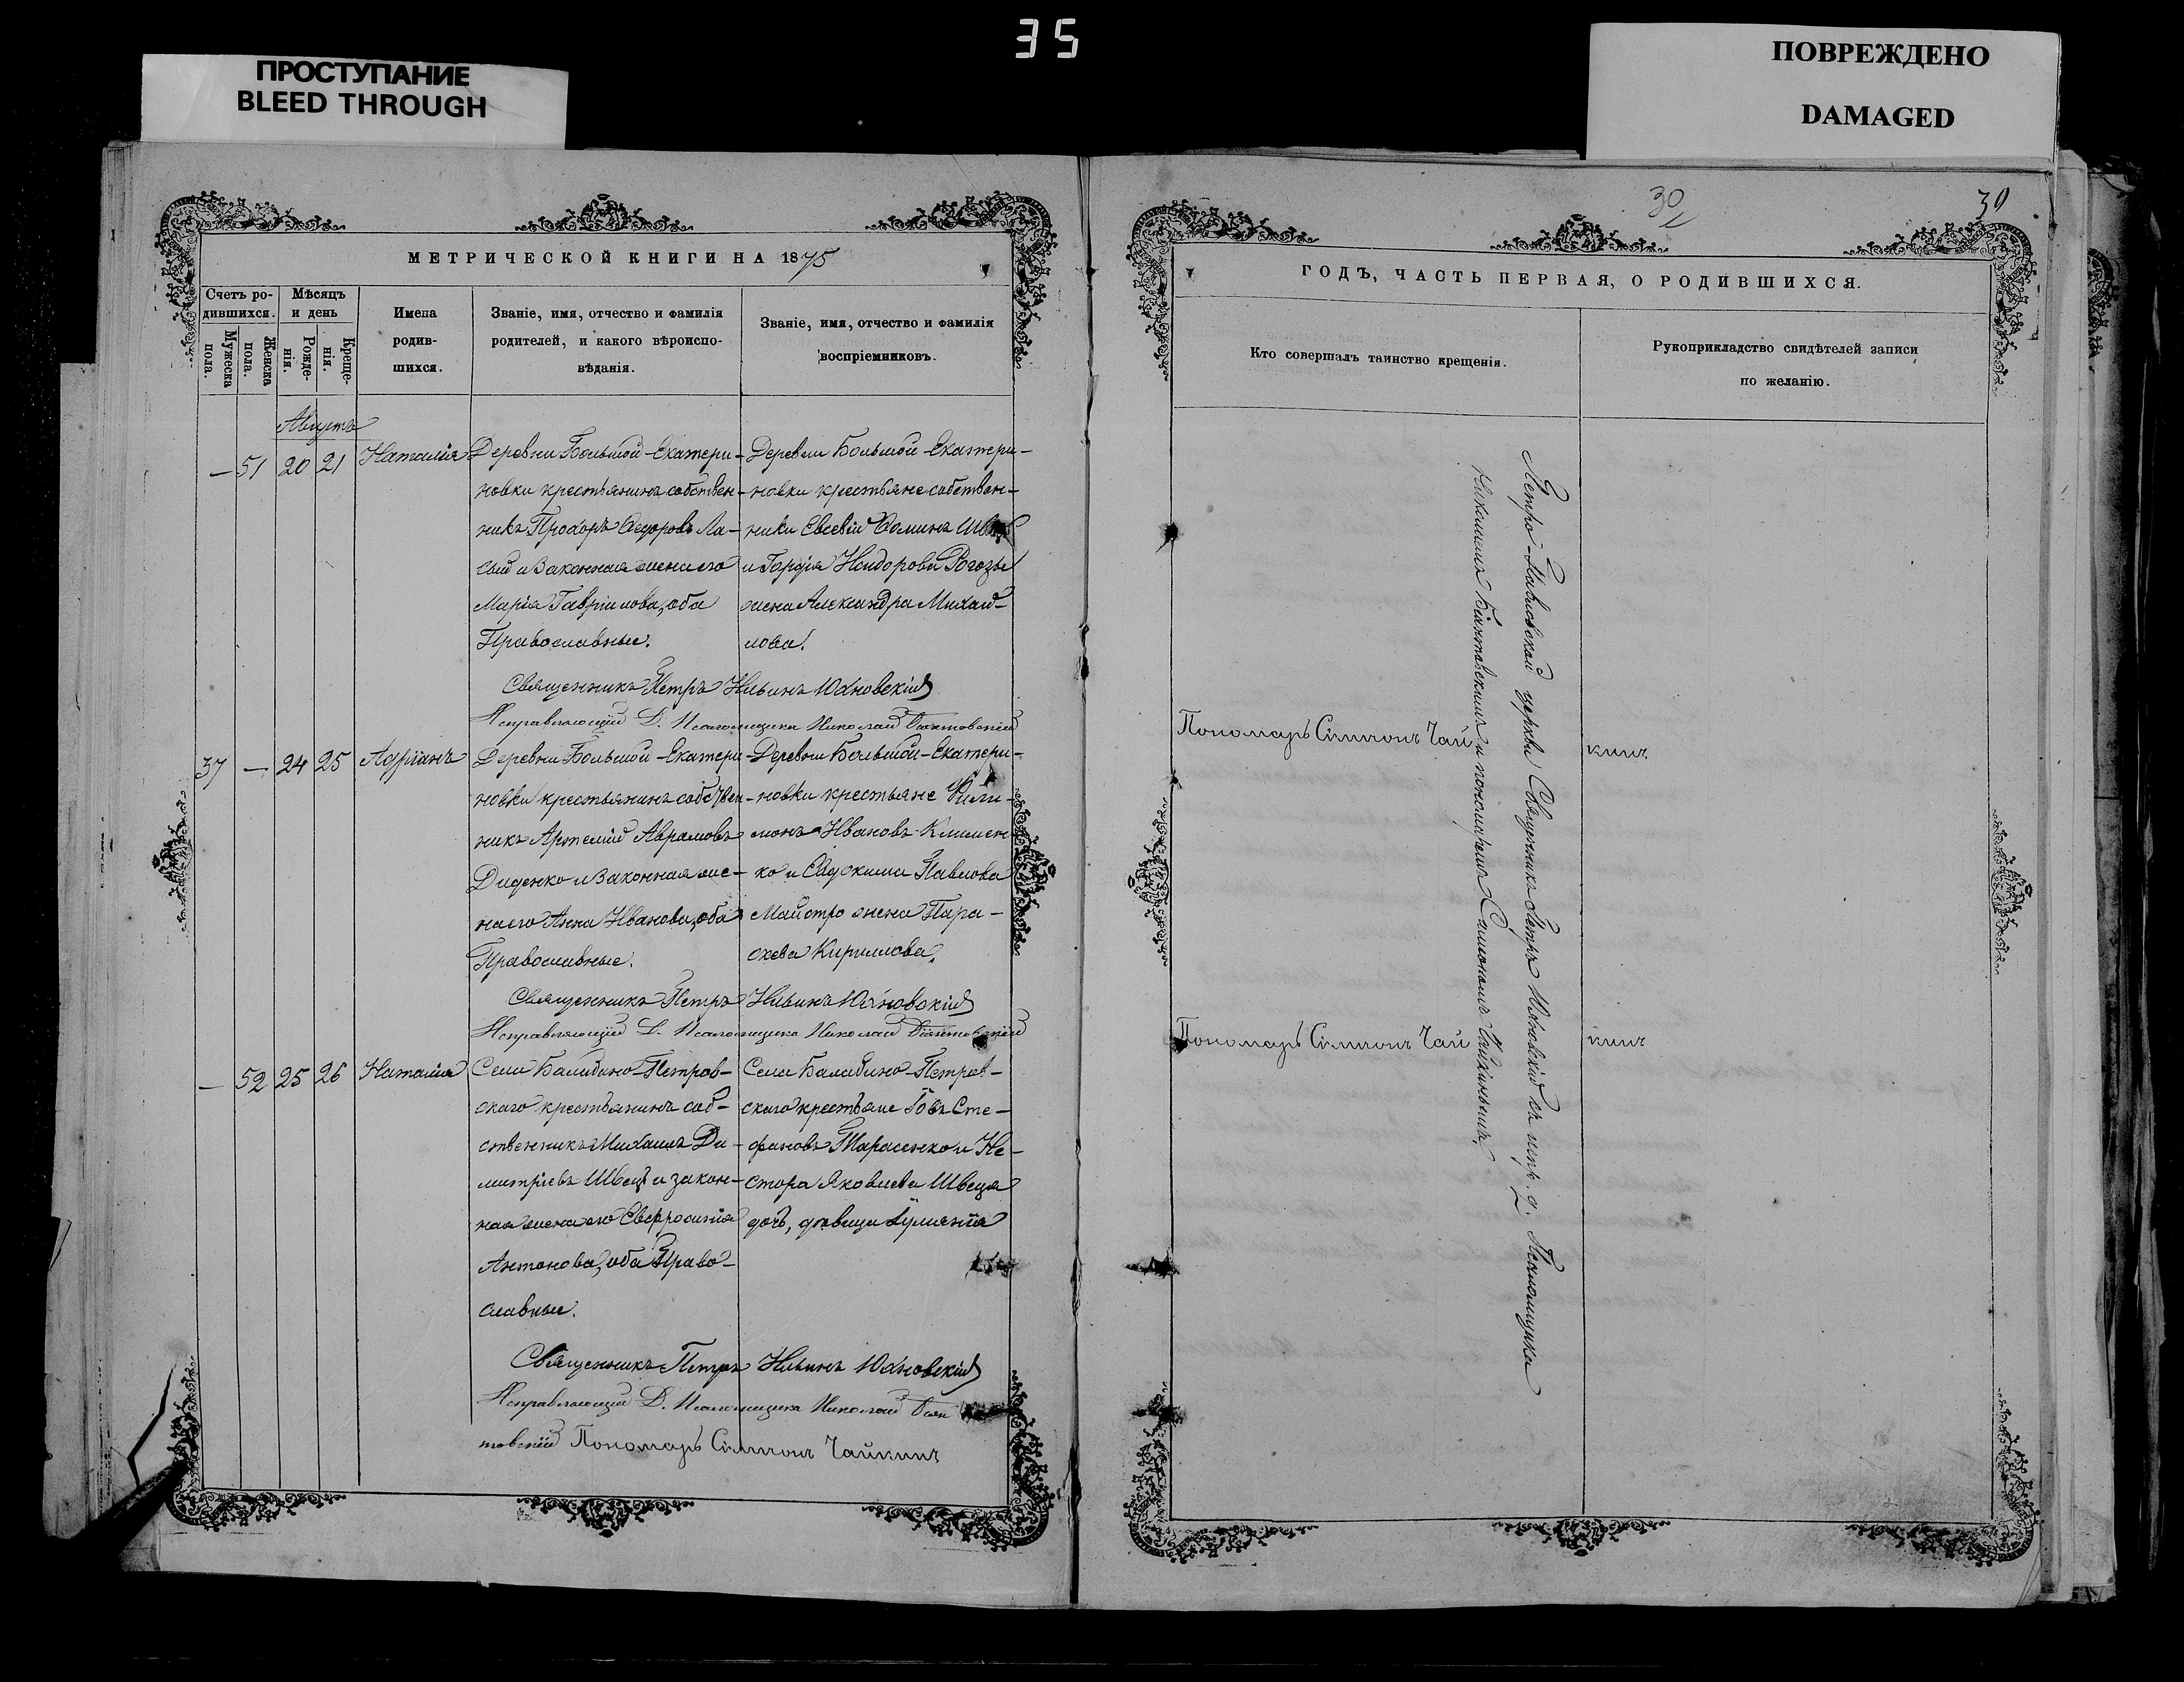 35
ПРОСТУПАНИЕ
BLEED THROUGH
ПОВРЕЖДЕНО
DAMAGED
30
30
МЕТРИЧЕСКОЙ КНИГИ НА 1875
Счетъ ро-
дившихся.
Мужеска
пола.
Женска
пола.
Мѣсяцъ
и день
Рожде-
нія.
Креще-
нія.
Имена
родив-
шихся.
Званіе, имя, отчество и фамилія
родителей, и какого вѣроиспо-
вѣданія.
Званіе, имя, отчество и фамилія
воспріемниковъ.
Августъ
— 51 20 21 Наталія
Деревни Большой-Екатери-
новки крестьянинъ собствен-
никъ Прохоръ Ѳедоровъ Ла-
сый и законная жена его
Марія Гавріилова, оба
Православные.
Деревни Большой-Екатери-
новки крестьяне собствен-
ники Евсевій Ѳоминъ
и Гордія Исидорова Рогозы
жена Александра Михай-
лова.
Священникъ Петръ Ильинъ Юхновскій
Исправляющій Д. Псаломщика Николай Біянтовскій
37 — 24 25 Адріанъ
Деревни Большой-Екатери-
новки крестьянинъ собствен-
никъ Артемій Аврамовъ
Диденко и законная же-
на его Анна Иванова, оба
Православные.
Деревни Большой-Екатери-
новки крестьяне Фили-
монъ Ивановъ Климен-
ко и Евдокима Павлова
Майстро жена Пара-
скева Кириллова.
Священникъ Петръ Ильинъ Юхновскій
Исправляющій Д. Псаломщика Николай Біянтовскій
— 52 25 26 Наталія
Села Балабино-Петров-
скаго крестьянинъ соб-
ственникъ Михаилъ Ди-
митріевъ Швецъ и закон-
ная жена его Евфросинія
Антонова, оба Право-
славные.
Села Балабино-Петров-
скаго крестьяне Іовъ Сте-
фановъ Тарасенко и Не-
стора Яковлева Швеца
дочь, дѣвица Іуліанія
Священникъ Петръ Ильинъ Юхновскій
Исправляющій Д. Псаломщика Николай Біян
товскій Пономарь Симеонъ Чайкинъ
ГОДЪ, ЧАСТЬ ПЕРВАЯ, О РОДИВШИХСЯ.
Кто совершалъ таинство крещенія.
Рукоприкладство свидѣтелей записи
по желанію.
Петро-Павловской церкви Священникъ Петръ Юхновскій съ испр. д. Псаломщика
Николаемъ Біянтовскимъ и пономаремъ Симеономъ Чайкинымъ.
Пономарь Симеонъ Чайкинъ
Пономарь Симеонъ Чайкинъ